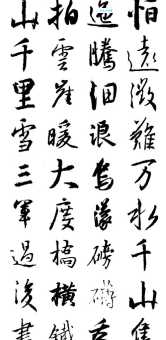 怕遠徵難万水千山隻
迤騰細浪烏濛磅礴
拍雲崖暖大度橋橫鐵
山千里雪三軍過後盡